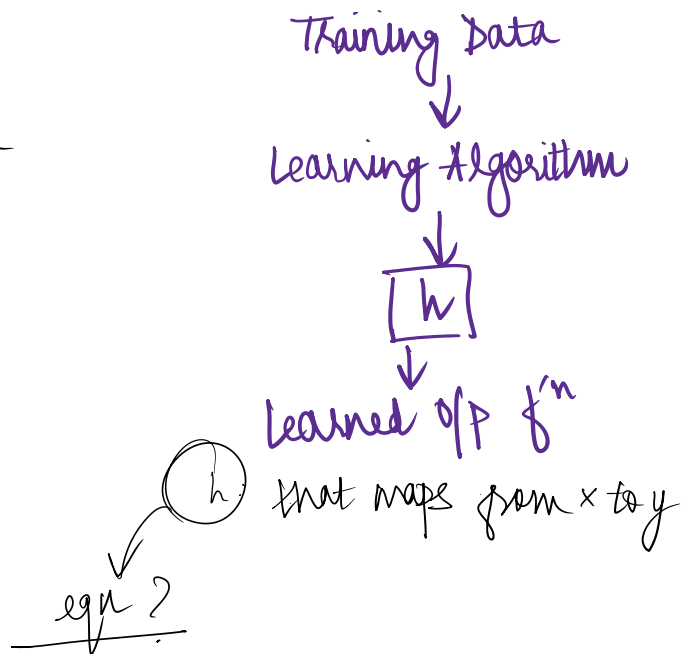 Training Data
Learning Algorithm
h
Learned o/p fⁿ
h: that maps from x to y
eqn ?